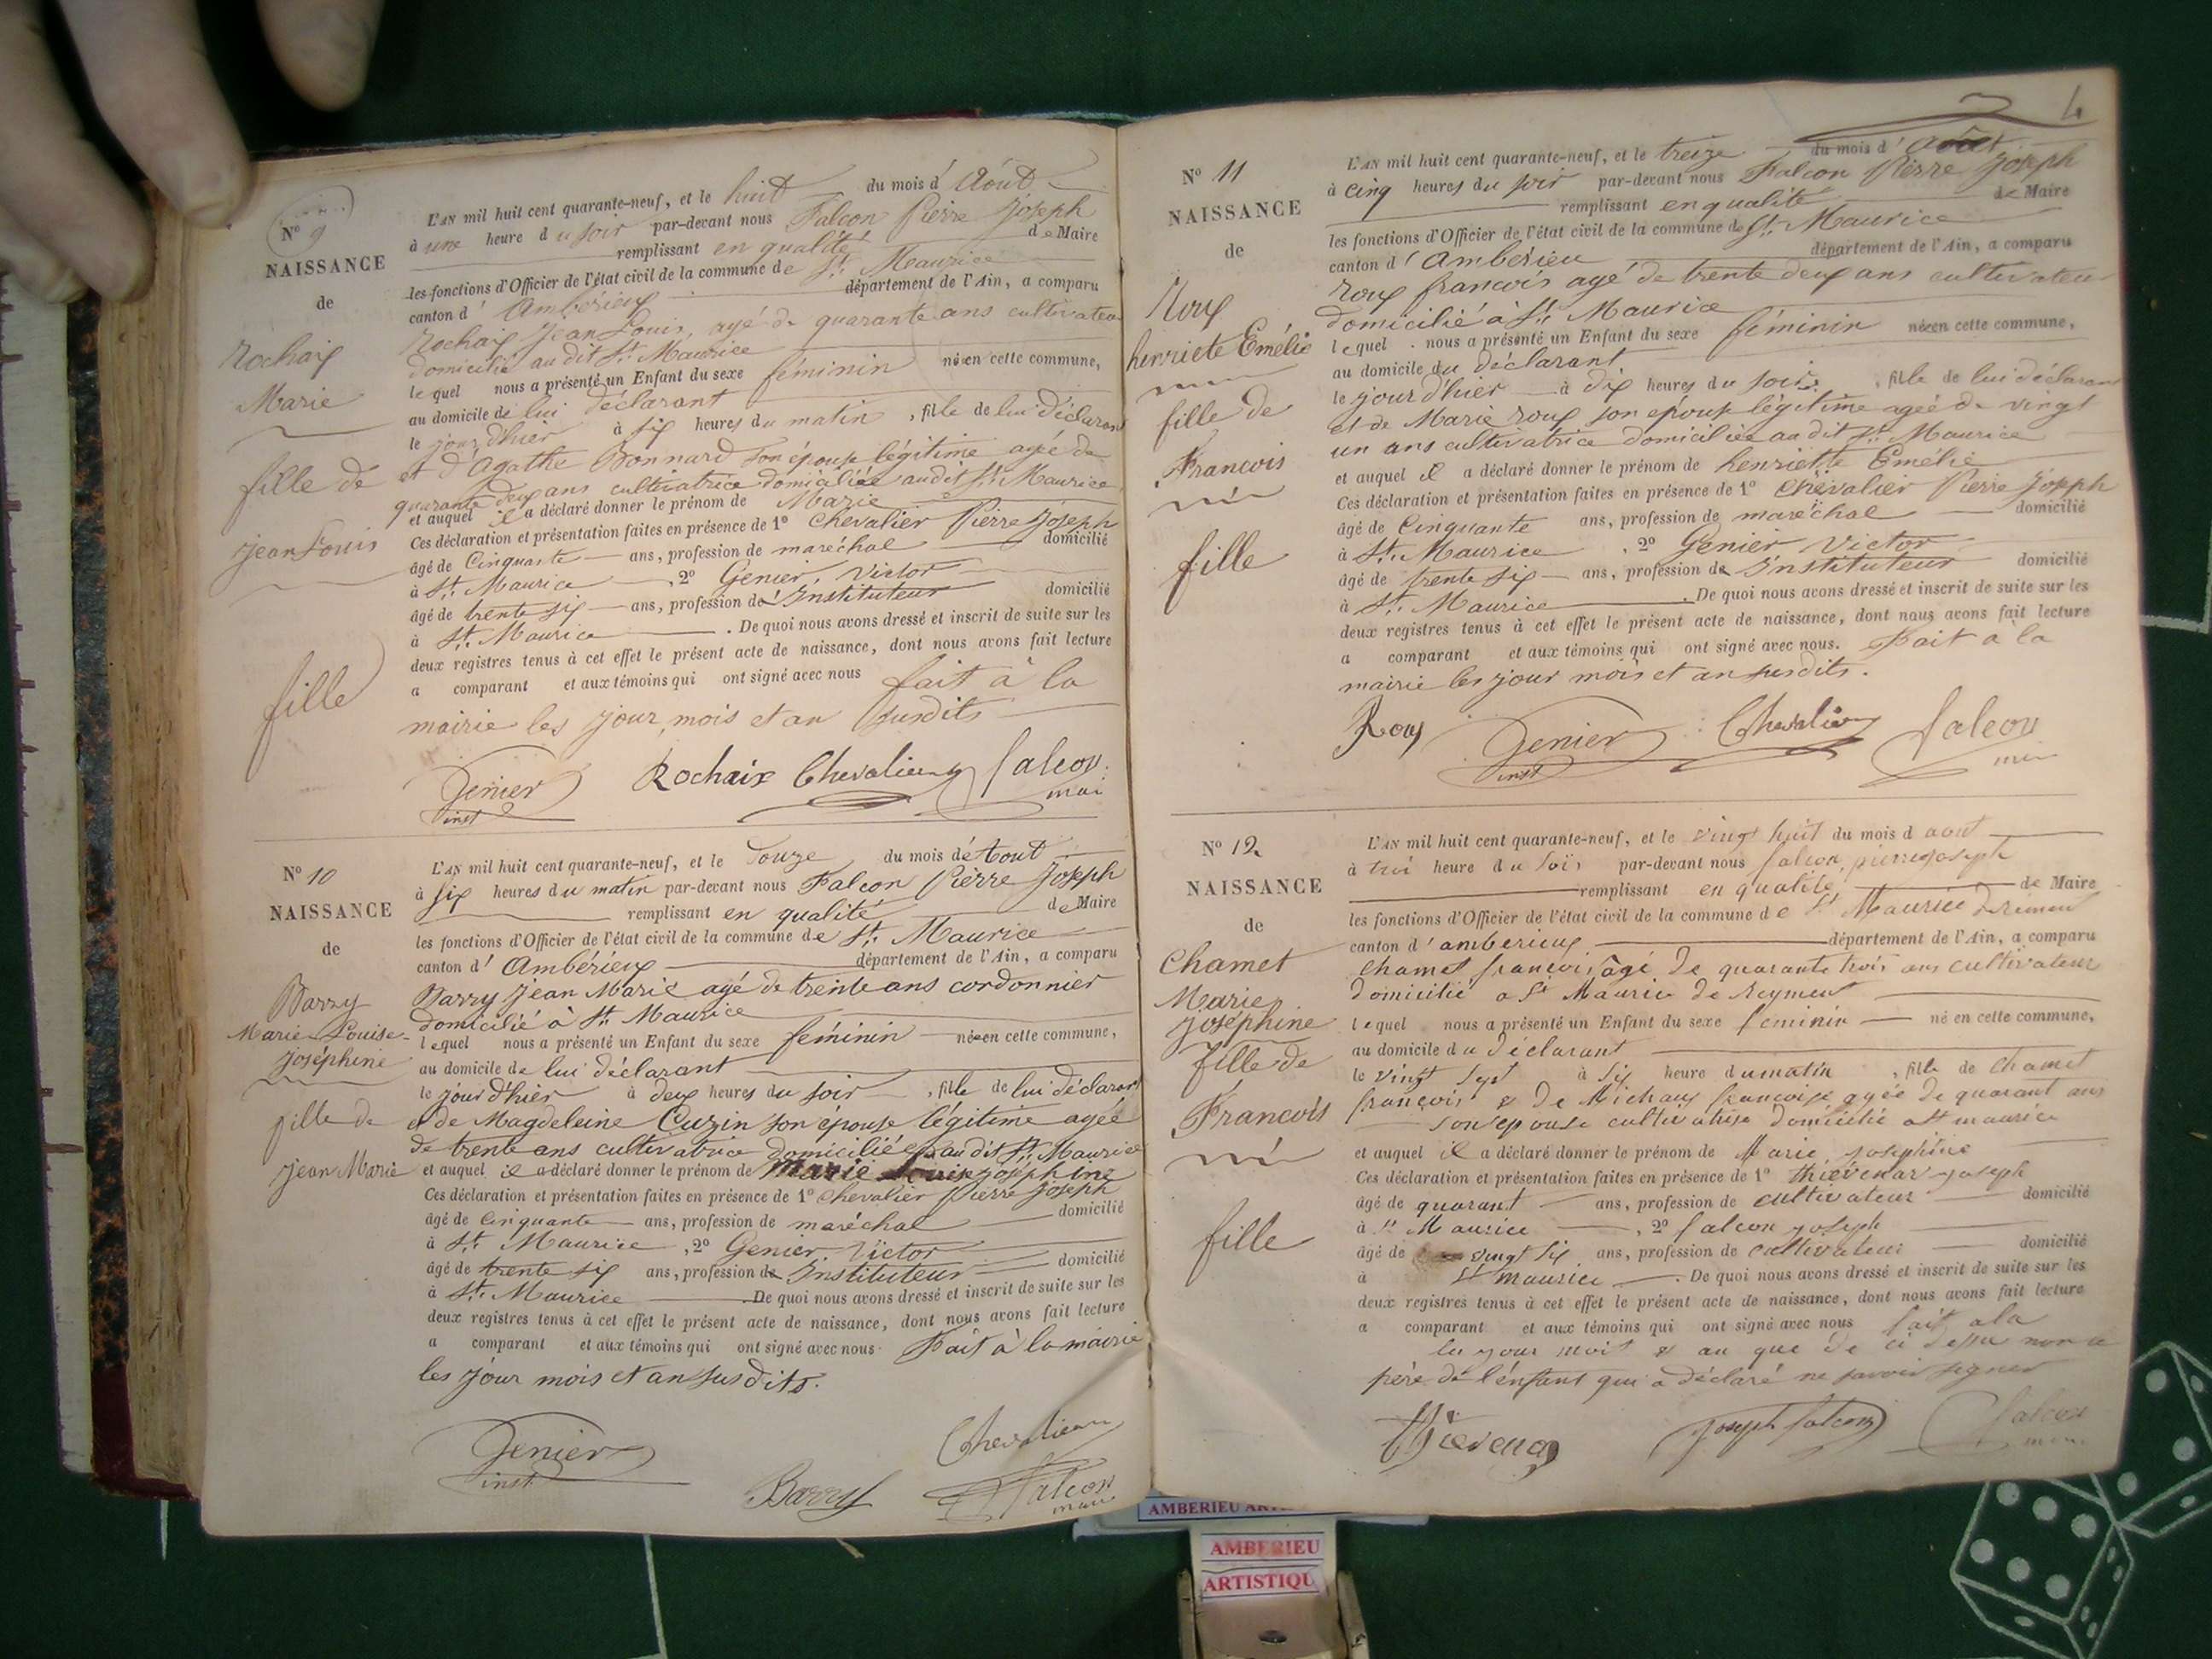 Nº 9
NAISSANCE
de
Rochaix
Marie
fille de
Jean Louis
fille
L'AN mil huit cent quarante-neuf, et le huit du mois d'Août
à une heure du soir par-devant nous Falcon Pierre Joseph
remplissant en qualité de Maire
les fonctions d'Officier de l'état civil de la commune de St. Maurice
canton d'Ambérieux département de l'Ain, a comparu
Rochaix Jean Louis, agé de quarante ans cultivateur
domicilié au dit St. Maurice
lequel nous a présenté un Enfant du sexe féminin né en cette commune,
au domicile de lui déclarant
le jour d'hier à six heures du matin, fille de lui déclarant
et d'Agathe Bonnard son épouse légitime agée de
quarante deux ans cultivatrice domiciliée audit St. Maurice
et auquel il a déclaré donner le prénom de Marie
Ces déclaration et présentation faites en présence de 1º Chevalier Pierre Joseph
âgé de Cinquante ans, profession de maréchal domicilié
à St. Maurice, 2º Genier, Victor
âgé de trente six ans, profession d'Instituteur domicilié
à St. Maurice. De quoi nous avons dressé et inscrit de suite sur les
deux registres tenus à cet effet le présent acte de naissance, dont nous avons fait lecture
a comparant et aux témoins qui ont signé avec nous fait à la
mairie les jour, mois et an susdits
Genier Rochaix Chevalier Falcon
inst mai
Nº 10
NAISSANCE
de
Barry
Marie-Louise-
Joséphine
fille de
Jean Marie
L'AN mil huit cent quarante-neuf, et le Douze du mois d'Aout
à six heures du matin par-devant nous Falcon Pierre Joseph
remplissant en qualité de Maire
les fonctions d'Officier de l'état civil de la commune de St. Maurice
canton d'Ambérieux département de l'Ain, a comparu
Barry Jean Marie agé de trente ans cordonnier
domicilié à St. Maurice
lequel nous a présenté un Enfant du sexe féminin né en cette commune,
au domicile de lui déclarant
le jour d'hier à deux heures du soir, fille de lui déclarant
et de Magdeleine Cuzin son épouse légitime agée
de trente ans cultivatrice domiciliée audit St. Maurice
et auquel il a déclaré donner le prénom de Marie Louise josephine
Ces déclaration et présentation faites en présence de 1º Chevalier Pierre Joseph
âgé de Cinquante ans, profession de maréchal domicilié
à St. Maurice, 2º Genier. Victor
âgé de trente six ans, profession de Instituteur domicilié
à St. Maurice De quoi nous avons dressé et inscrit de suite sur les
deux registres tenus à cet effet le présent acte de naissance, dont nous avons fait lecture
a comparant et aux témoins qui ont signé avec nous. Fait à la mairie
les jour mois et an susdits.
Genier Chevalier
inst Barry Falcon
4
Nº 11
NAISSANCE
de
Roux
henriete Emélie
fille de
Francois
fille
L'AN mil huit cent quarante-neuf, et le treize du mois d'Août
à cinq heures du soir par-devant nous Falcon Pierre Joseph
remplissant en qualité de Maire
les fonctions d'Officier de l'état civil de la commune de St. Maurice
canton d'Ambérieu département de l'Ain, a comparu
roux francois agé de trente deux ans cultivateur
domicilié à St. Maurice
lequel nous a présenté un Enfant du sexe féminin née en cette commune,
au domicile du déclarant
le jour d'hier à dix heures du soir, fille de lui déclarant
et de Marie roux son épouse légitime agée de vingt
un ans cultivatrice domiciliée au dit St. Maurice
et auquel il a déclaré donner le prénom de henriette Emélie
Ces déclaration et présentation faites en présence de 1º Chevalier Pierre Joseph
âgé de Cinquante ans, profession de maréchal domicilié
à St. Maurice, 2º Genier Victor
âgé de trente six ans, profession de Instituteur domicilié
à St. Maurice. De quoi nous avons dressé et inscrit de suite sur les
deux registres tenus à cet effet le présent acte de naissance, dont nous avons fait lecture
a comparant et aux témoins qui ont signé avec nous. Fait à la
mairie les jour mois et an susdits.
Roux Genier Chevalier Falcon
inst
Nº 12
NAISSANCE
de
Chamet
Marie
Joséphine
fille de
Francois
fille
L'AN mil huit cent quarante-neuf, et le vingt huit du mois d aout
à troi heure du soir par-devant nous falcon pierre joseph
remplissant en qualité de Maire
les fonctions d'Officier de l'état civil de la commune de St Maurice
canton d'amberieux département de l'Ain, a comparu
Chamet françois âgé de quarante trois ans cultivateur
domicilié a St Maurice
lequel nous a présenté un Enfant du sexe feminin né en cette commune,
au domicile du déclarant
le vingt sept à six heure du matin, fille de Chamet
françois & de Michaux françoise agée de quarant ans
son epouse cultivatrise domicilié a St maurice
et auquel il a déclaré donner le prénom de Marie josephine
Ces déclaration et présentation faites en présence de 1º joseph
âgé de quarant ans, profession de cultivateur domicilié
à St Maurice, 2º falcon joseph
âgé de vingt six ans, profession de cultivateur domicilié
à St maurice. De quoi nous avons dressé et inscrit de suite sur les
deux registres tenus à cet effet le présent acte de naissance, dont nous avons fait lecture
a comparant et aux témoins qui ont signé avec nous fait a la
jour mois & an que de ci dessu non le
père de l'enfant qui a déclaré ne savoir signer
joseph falcon falcon
AMBERIEU
AMBERIEU
ARTISTIQU